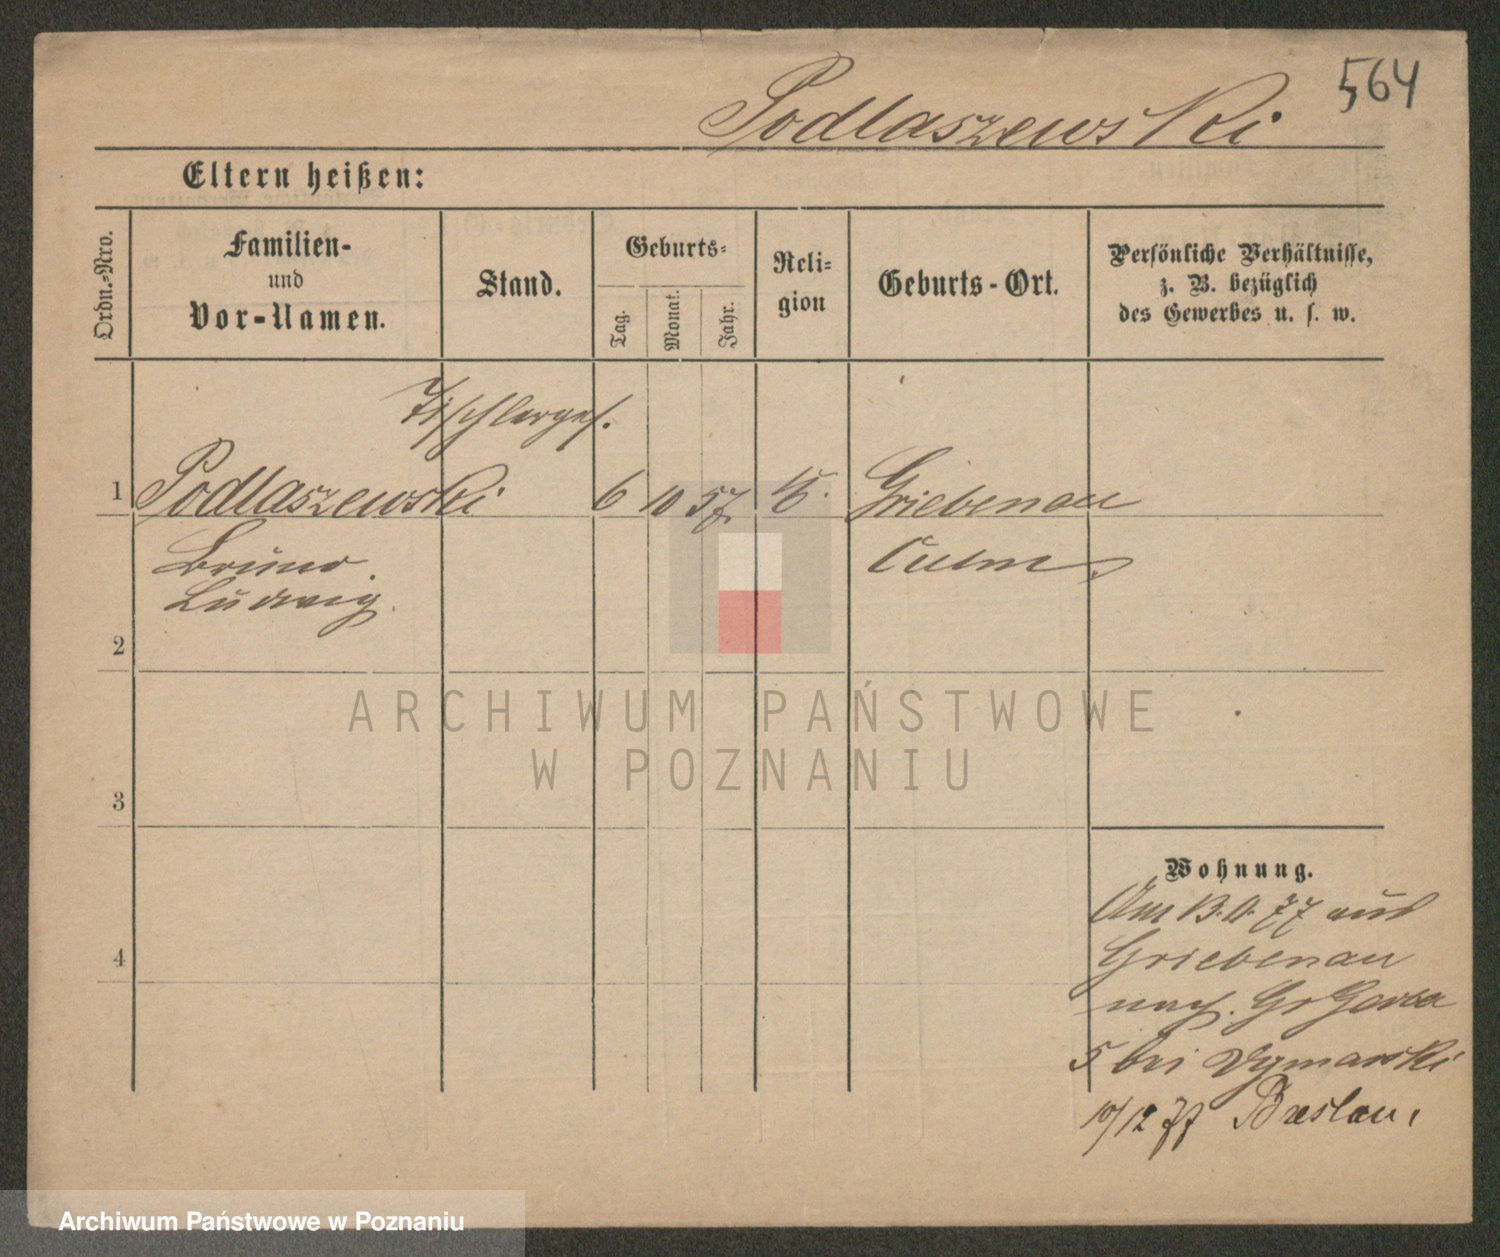 564
Podlaszewski
Eltern heißen:
Ordn.-Nro.
Familien-
und
Vor-Namen.
Stand.
Geburts-
Tag.
Monat.
Jahr.
Reli-
gion
Geburts-Ort.
Persönliche Verhältnisse,
z. B. bezüglich
des Gewerbes u. s. w.
Tischlerges.
1 Podlaszewski 6 10 57 Griebenau
Bruno Culm
Ludwig
2
3
4
ARCHIWUM PAŃSTWOWE
W POZNANIU
Wohnung.
Am 77 aus
Griebenau
nach Gr
5 bei Dymarski
10/12 77 Breslau.
Archiwum Państwowe w Poznaniu